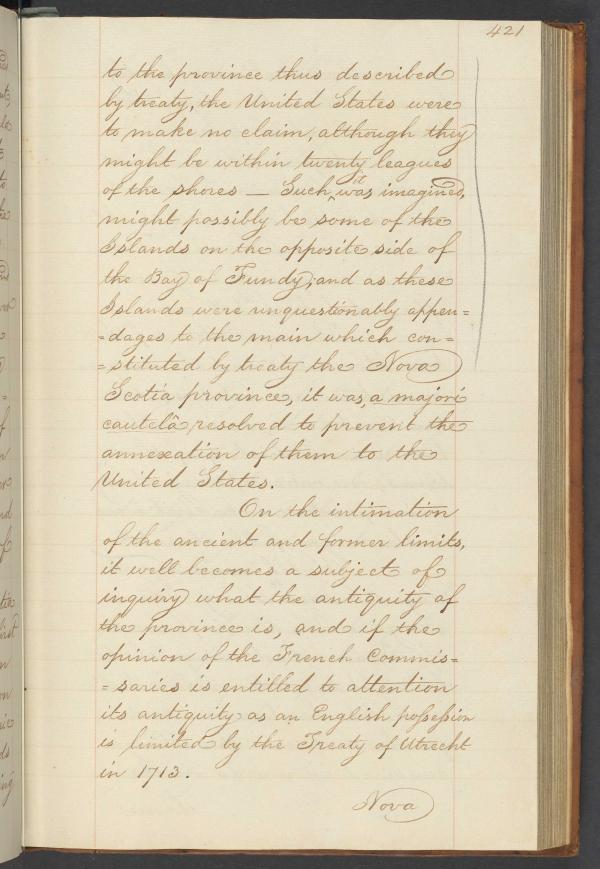 421
to the province thus described
by treaty, the United States were
to make no claim, although they
might be within twenty leagues
of the shores — Such, it was imagined,
might possibly be some of the
Islands on the opposite side of
the Bay of Fundy; and as these
Islands were unquestionably appen=
=dages to the main which con=
=stituted by treaty the Nova
Scotia province, it was, a majori
cautelâ resolved to prevent the
annexation of them to the
United States.
On the intimation
of the ancient and former limits,
it well becomes a subject of
inquiry what the antiquity of
the province is, and if the
opinion of the French Commis=
=saries is entitled to attention
its antiquity as an English possession
is limited by the Treaty of Utrecht
in 1713.
Nova